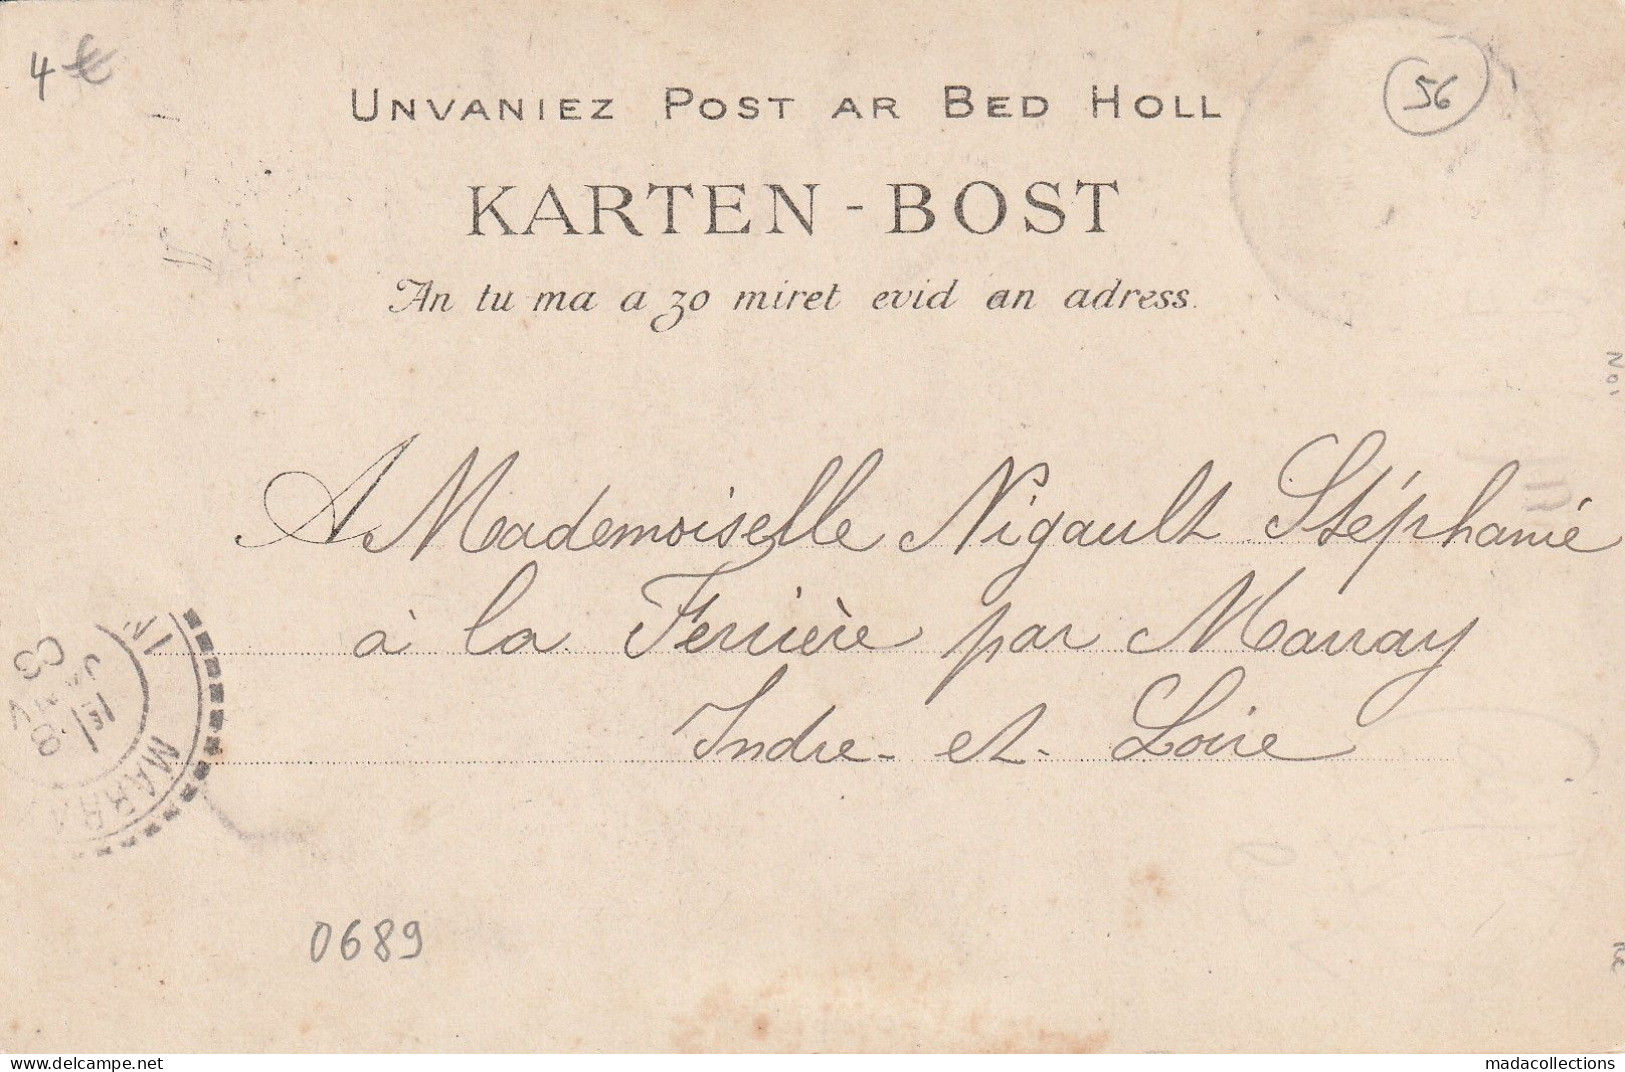 4 €
56
UNVANIEZ POST AR BED HOLL
KARTEN-BOST
An tu ma a zo miret evid an adress.
A Mademoiselle Nigault Stéphanie
à la Ferrière par Marray
Indre-et-Loire
MARRAY
03
0689
delcampe.net
madacollections